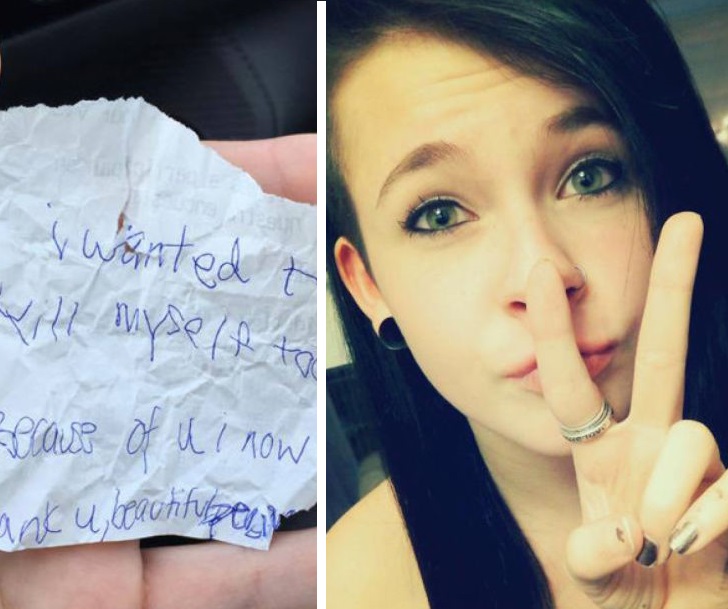 i wanted t
kill myself too
Because of u i now
ank u, beautiful